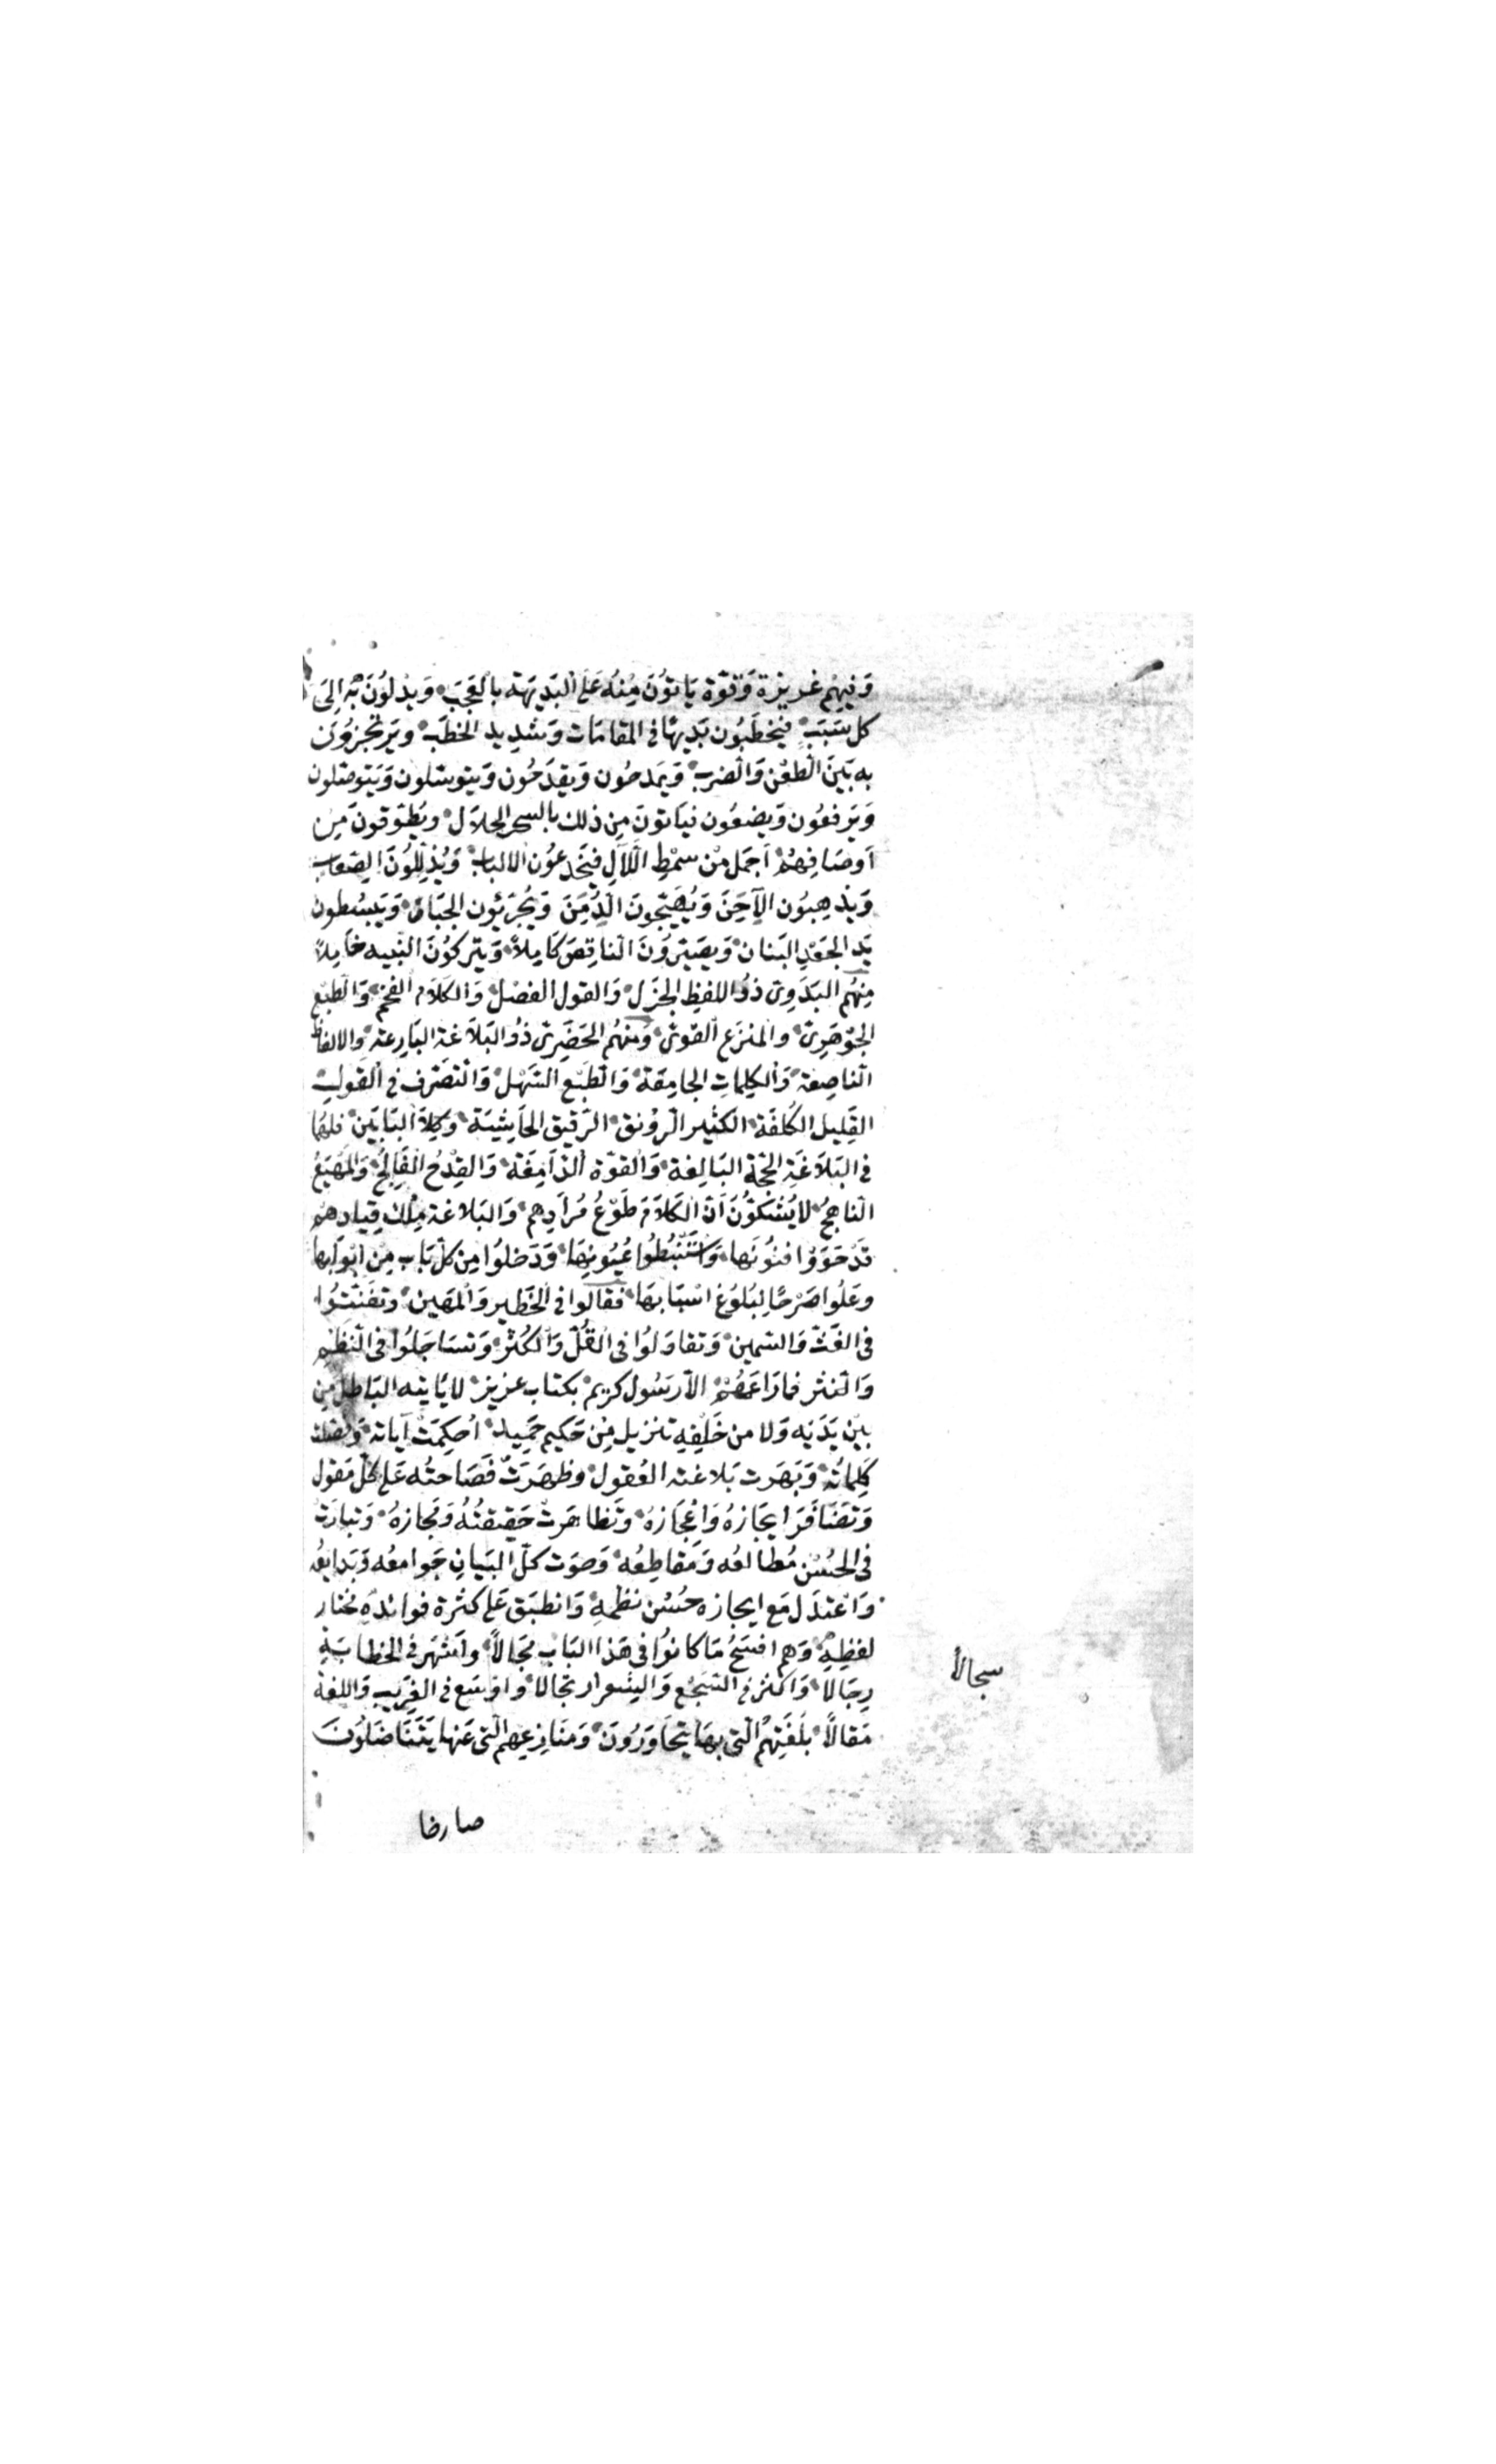 وَفيهِم غريزة وَقوّة يَاتوُنَ مِنْهُ عَلَى الْبَدِيهَة بالْعَجَبِ وَيدْلوُنَ بِهِ اِلىَ
كل سَبَبٍ فيَخطبُون بَديهًا فى المقامَات وَشديد الخطب وَيَرتجزوُن
به بَيْنَ الطّعْن وَالضّرب وَيَمدحُون وَيَقدَحُون وَيتوسّلون وَيَتوصّلون
وَيَرفعُون وَيضعُون فيَاتونَ مِن ذلك بالسحر الحلاَل ويُطوّقونَ مِن
اَوصَافِهِمْ اَجمَل مِنْ سمْطِ اللآل فيَخدعوُن الالباب وَيُذلّلوُنَ الصّعَاب
وَيذهِبوُن الاِحَنَ وَيُهَيّجونَ الدِّمَنَ وَيُجرّئون الجَبَان وَيَبسُطون
يَد الجَعْدِ البَنان وَيصَيّروُنَ النّاقِصَ كَامِلاً وَيَتركوُنَ النّبيه خَامِلاً
مِنْهُم البَدَوِىّ ذوُ اللفظِ الجزَل وَالقول الفصْل وَالكلاَم الفخم وَالطبْع
الجَوْهَرِىّ والمنزَع القوىّ وَمنهُم الحَضَرِىّ ذوُ البَلاَغة البَارِعَة والالفاظ
النّاصِعة وَالكلِمَاتِ الجامِعَة وَالطّبْع السّهْل وَالتّصَرف فى القَولِ
القَلِيل الكُلفَة الكثير الرّوْنق الرّقيق الحَاشِيَة وَكِلاَ البَابَيْن فلهُما
فى البَلاَغَةِ الحجّة البَالِغة وَالقوّة الدّامِغَة وَالقِدْح الفَالِجُ وَالمَهْيَعُ
النّاهجُ لا يَشكوُّنَ اَنّ الكَلاَمَ طَوْعُ مُرَادِهِم وَالبَلاغة مِلْك قِيادهِم
قَدْ حَوَوْا فنوُنَها وَاسْتَنْبَطُوا عُيُونهَا وَدَخلوُا مِن كلّ بَاب مِن ابْوَابها
وعَلُوا صَرْحًا لِبُلوُغ اسْبَابهَا فقالوا فى الخَطير وَالمَهين وتفَنّنوُا
فى الغَثّ وَالسّمين وَتقاوَلوُا فى القُلّ وَالكُثْر وَتسَاجَلوُا فى النّظم
وَالنّثر فمارَاعَهُمْ الاّ رَسُول كريم بكتاب عزيز لا يَاتيه البَاطِل مِن
بَيْن يَدَيْه وَلا من خَلْفِهِ تنزيل مِن حَكيم حَميد اُحكِمَتْ آياته وَفصّلت
كَلِمَاتُه وَبَهَرَت بَلاغته العُقول وظهَرَتْ فَصَاحتُه عَلى كلّ مَقول
وَتَضَافَرَ ايجَازهُ وَاعْجَازهُ وَتَظاهَرتْ حَقيقتُهُ وَمَجازهُ وَتبارَتْ
فى الحُسْن مَطالعُه وَمَقاطِعُه وَحوَت كلّ البَيانِ جَوامعُه وَبَدايعُه
وَاعْتدَل مَع ايجازه حُسْن نظمِهِ وَانطبَق عَلى كثرة فوائدهِ مختار
لفظِهِ وَهم افسَحُ مَا كانوُا فى هَذا البَاب مَجَالاً واَشْهَر فى الخطابَةِ
رِجَالا وَاكثر فى السّجْع وَالشِعر ارتجالا واوْسَع فى الغَرِيبِ وَاللغة
مَقالاً بلُغَتِهِم الّتى بهَا يَتحَاوَرُونَ وَمَنَازِعِهِم الّتى عَنهَا يَتَنَاضَلوُنَ
سجالاً
صارخا